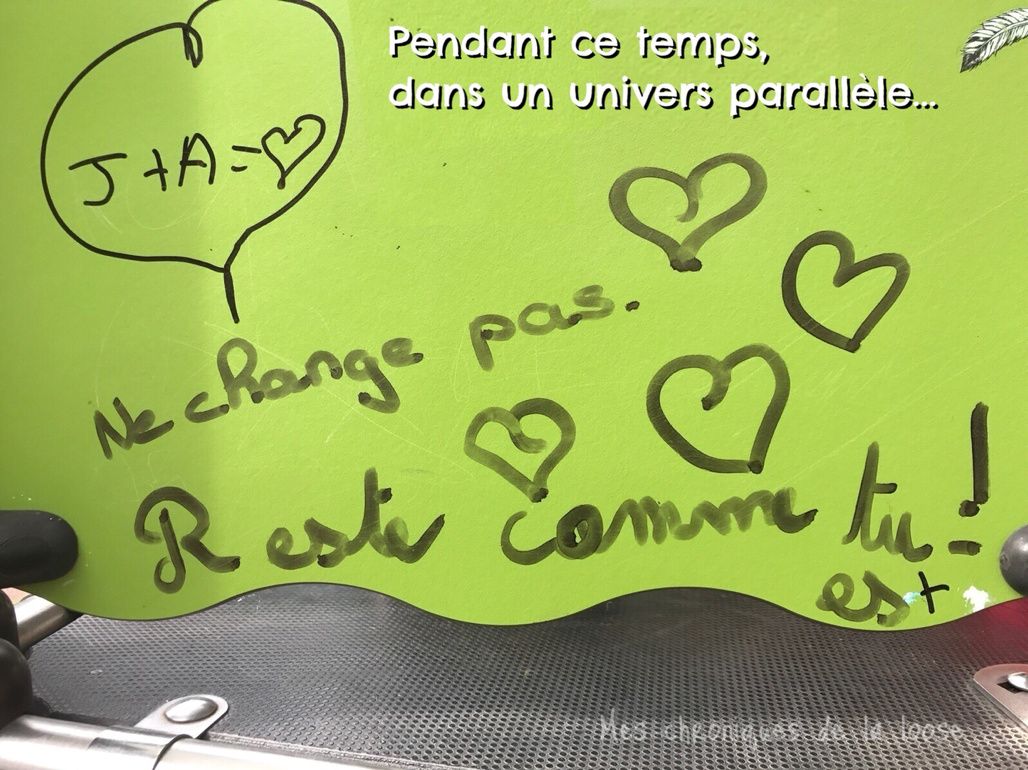 Pendant ce temps,
dans un univers parallèle...
J+A=♡
Ne change pas.
Reste comme tu !
es+
Mes chroniques de la loose